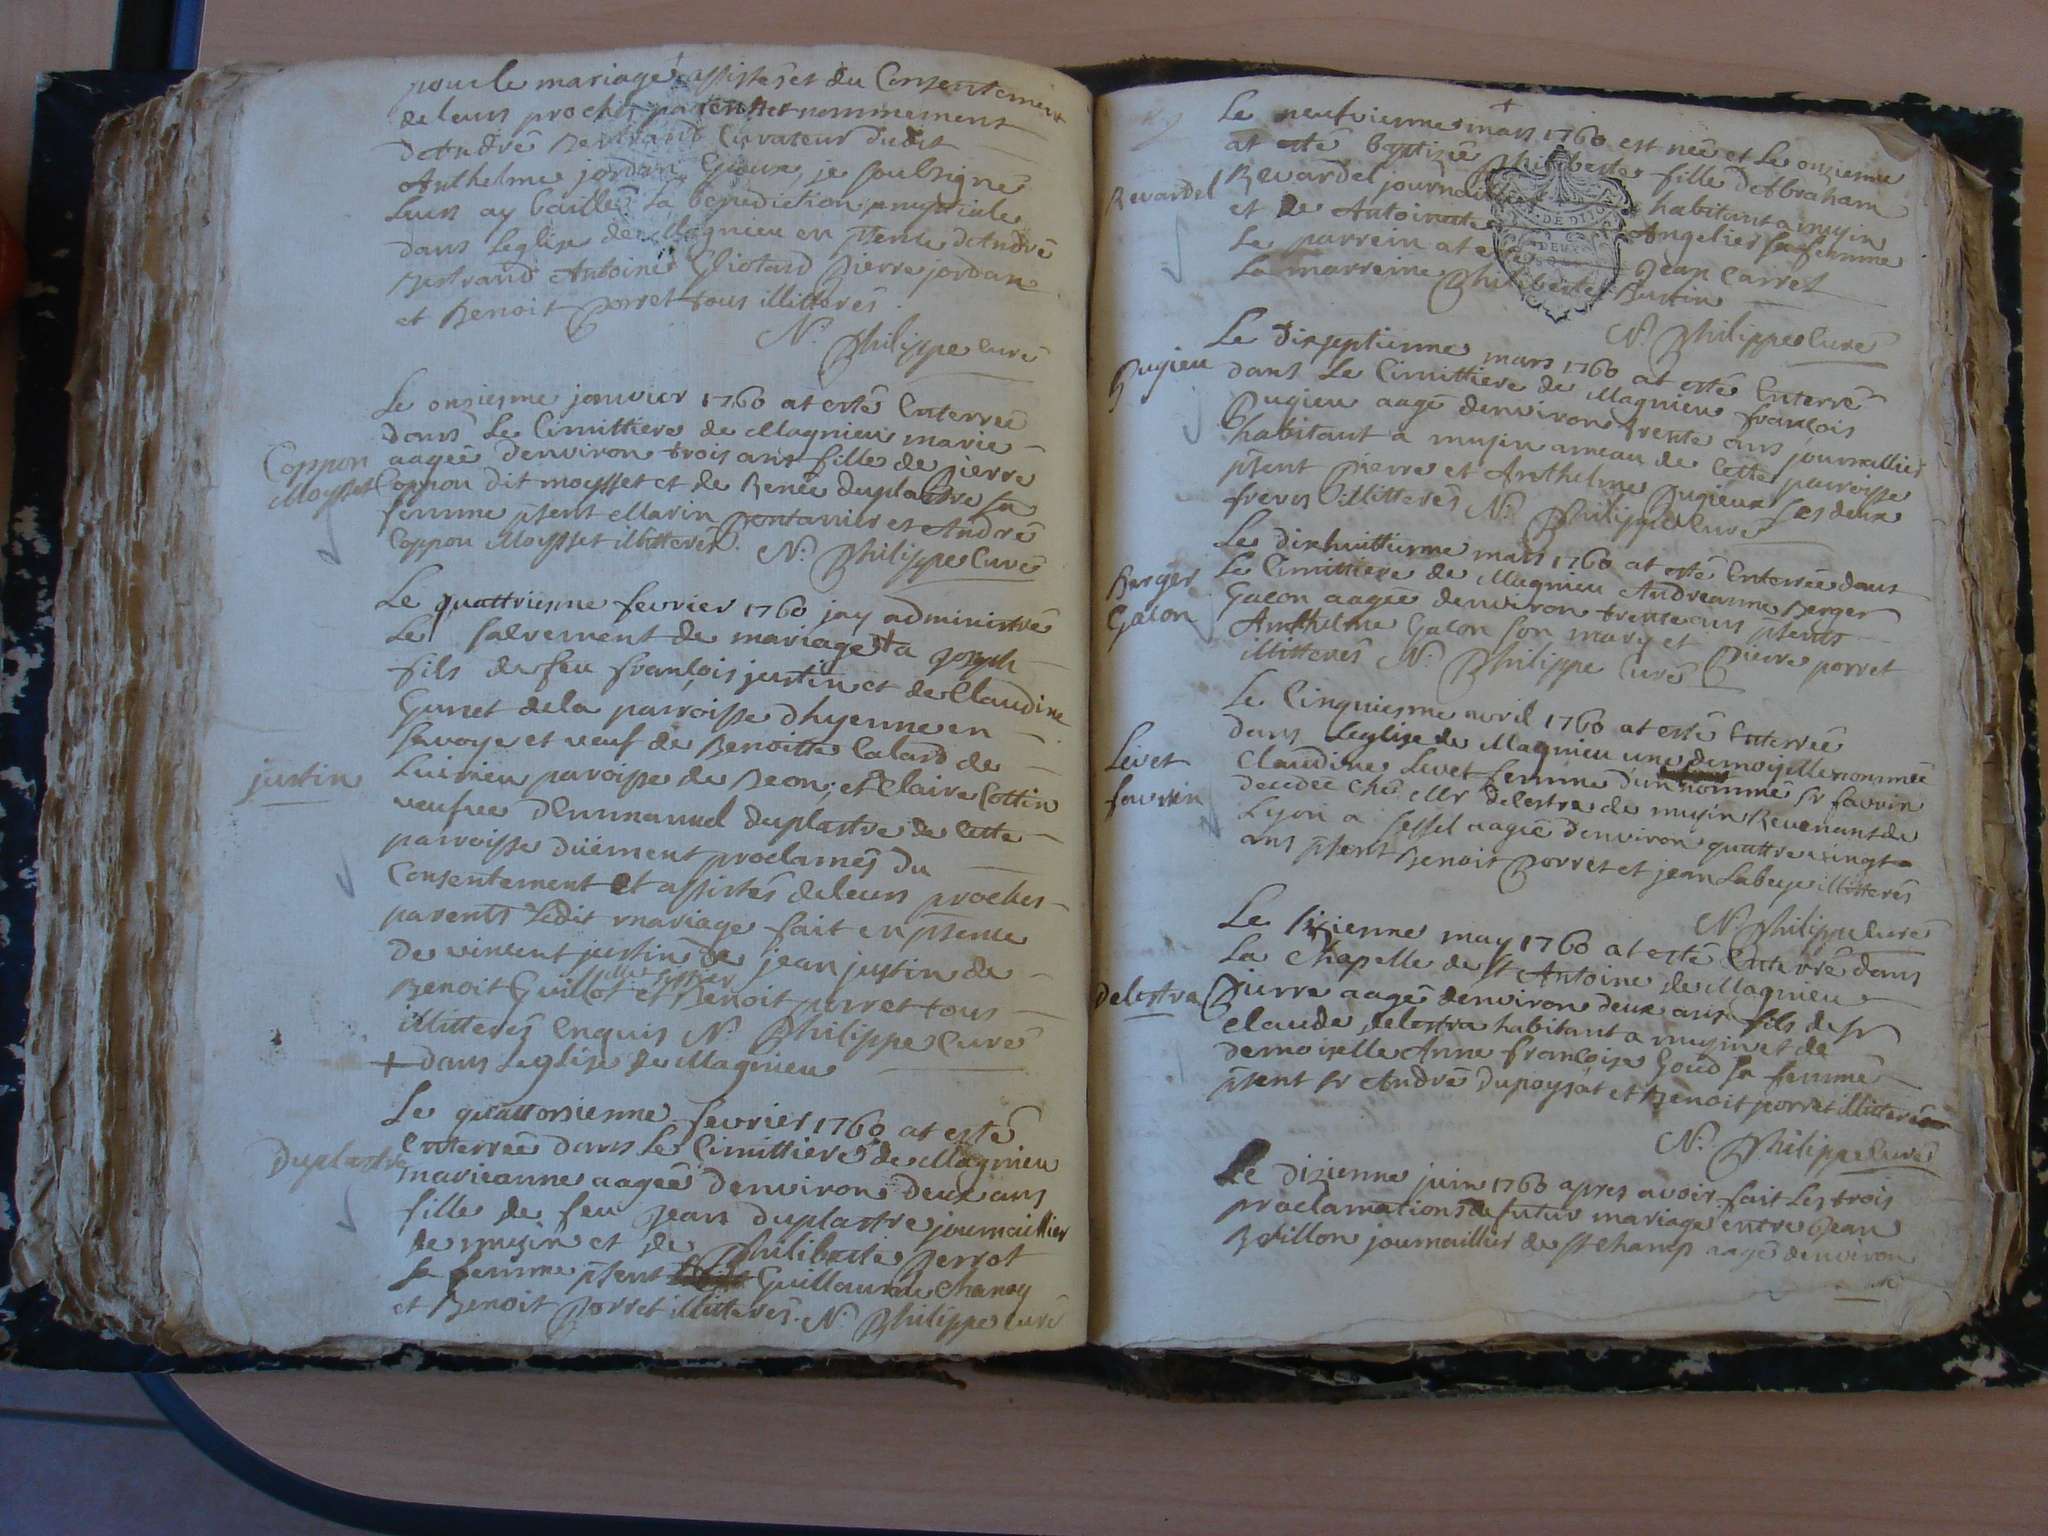 pour le mariage assistés et du Consentement
de leurs proches parents et nommement
d'André Bertrand Curateur dudit
Anthelme jordan Epoux, je soulsigné
Leurs ay baillé la benediction nuptiale
dans Leglise de Magnieu en pñence d'André
Bertrand Antoine Gliotard Pierre jordan
et Benoit Porret tous illitterés
N. Philippe Curé
Le onziesme janvier 1760 at esté Enterrée
dans Le Cimittiere de Magnieu marie
aagée denviron trois ans fille de Pierre
Coppon
Moysset
Coppon dit moysset et de Renée duplastre sa
femme pñent Marin Pontannier et André
Coppon Moysset illitterés. N. Philippe Curé
Le quattriesme fevrier 1760 jay administré
Le sacrement de mariage + a joseph
fils de feu françois justin et de Claudine
Gunet de la parroisse dhyenne en
savoye et veuf de Benoitte Calard de
justin
Luirieu paroisse de Beon; et Claire Cottin
veufve d'Emmanuel duplastre de cette
parroisse düement proclamés du
Consentement et assistés de leurs proches
parents Ledit mariage fait en pñence
de vincent justin de jean justin de
Benoit Guillot et Benoit porret tous
illitterés Enquis N. Philippe Curé
+ dans Leglise de Magnieu
Le quattorsienne fevrier 1760 at esté
Enterrée dans Le Cimittiere de Magnieu
Duplastre
marieanne aagée d'environ deux ans
fille de feu jean duplastre journaillier
de musin et de Philiberte Perrot
sa femme pñent Guillaume Chaney
et Benoit Porret illitterés. N. Philippe Curé
+
Le neufvienne mars 1760 est née et Le onzienne
at esté baptizée Philiberte fille d'Abraham
Revardel
Revardel journaillier habitant a musin
et de Antoinette Angelier sa femme
Le parrein at esté Jean Carret
La marreine Philiberte Burtin
DE DIJON
N. Philippe Curé
Le dixseptienne mars 1760 at esté Enterré
Pugieu
dans Le Cimittiere de Magnieu françois
Pugieu aagé denviron trente ans journallier
habitant a musin ameau de Cette parroisse
pñent Pierre et Anthelme Pugieux ses deux
freres illitterés N. Philippe Curé
Le dixhuittienne mars 1760 at esté Enterrée dans
Berger
Gacon
Le Cimittiere de Magnieu Andréanne Berger
Gacon aagée denviron trente ans pñents
Anthelme Gacon son mary et Pierre porret
illitterés N. Philippe Curé
Le Cinquiesme avril 1760 at esté Enterrée
dans Leglise de Magnieu une demoiselle nommée
Livet
favrin
Claudine Livet femme d'un nommé sr favrin
decedée ches Mr delestra de musin Revenant de
Lyon a Seissel aagée denviron quattre vingt
ans pñent Benoit Porret et jean Labeye illitterés
N. Philippe Curé
Le sizienne may 1760 at esté Enterré dans
La Chapelle de st Antoine de Magnieu
Delestra
Pierre aagé denviron deux ans fils de sr
Claude delestra habitant a musin et de
demoiselle Anne françoise Goud sa femme
pñent sr André dupoysat et Benoit porret illitterés
N. Philippe Curé
Le dizienne juin 1760 apres avoir fait Les trois
proclamations de futur mariage entre Jean
Bovillon journaillier de st champ aagé denviron